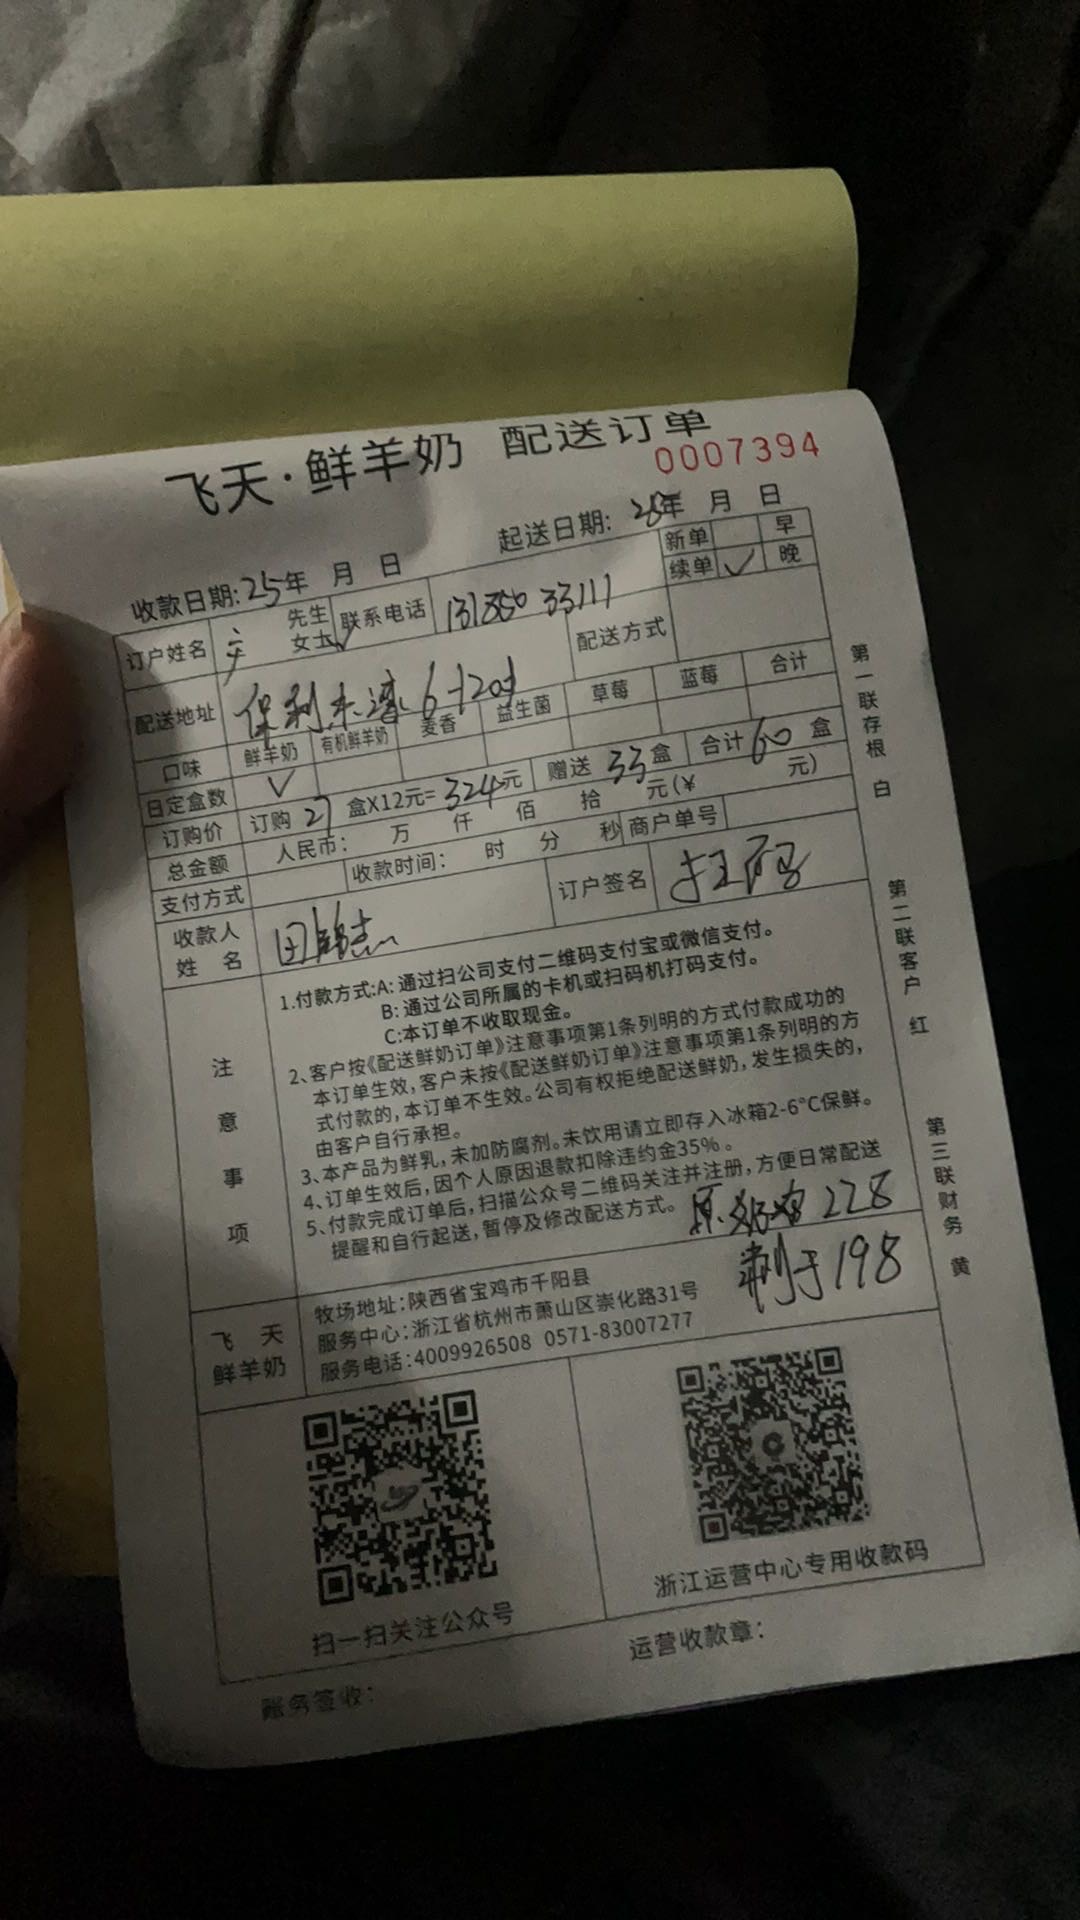 飞天·鲜羊奶 配送订单
0007394
收款日期:25年 月 日 起送日期: 25年 月 日
新单 早
续单 ✓ 晚
订户姓名 先生 女士✓ 联系电话 13185033111 配送方式
配送地址 保利 6-1201
口味 鲜羊奶 有机鲜羊奶 麦香 益生菌 草莓 蓝莓 合计
日定盒数 ✓
订购价 订购 27 盒X12元= 324元 赠送 33 盒 合计 60 盒
总金额 人民币: 万 仟 佰 拾 元(¥ 元)
支付方式 收款时间: 时 分 秒 商户单号
收款人姓名 订户签名
注意事项
1.付款方式:A: 通过扫公司支付二维码支付宝或微信支付。
B: 通过公司所属的卡机或扫码机打码支付。
C:本订单不收取现金。
2、客户按《配送鲜奶订单》注意事项第1条列明的方式付款成功的
本订单生效, 客户未按《配送鲜奶订单》注意事项第1条列明的方
式付款的, 本订单不生效。公司有权拒绝配送鲜奶, 发生损失的,
由客户自行承担。
3、本产品为鲜乳, 未加防腐剂。未饮用请立即存入冰箱2-6°C保鲜。
4、订单生效后, 因个人原因退款扣除违约金35% 。
5、付款完成订单后, 扫描公众号二维码关注并注册, 方便日常配送
提醒和自行起送, 暂停及修改配送方式。
228
剩于198
飞天鲜羊奶
牧场地址: 陕西省宝鸡市千阳县
服务中心: 浙江省杭州市萧山区崇化路31号
服务电话: 4009926508 0571-83007277
扫一扫关注公众号
浙江运营中心专用收款码
账务签收:
运营收款章:
第一联存根 白
第二联客户 红
第三联财务 黄